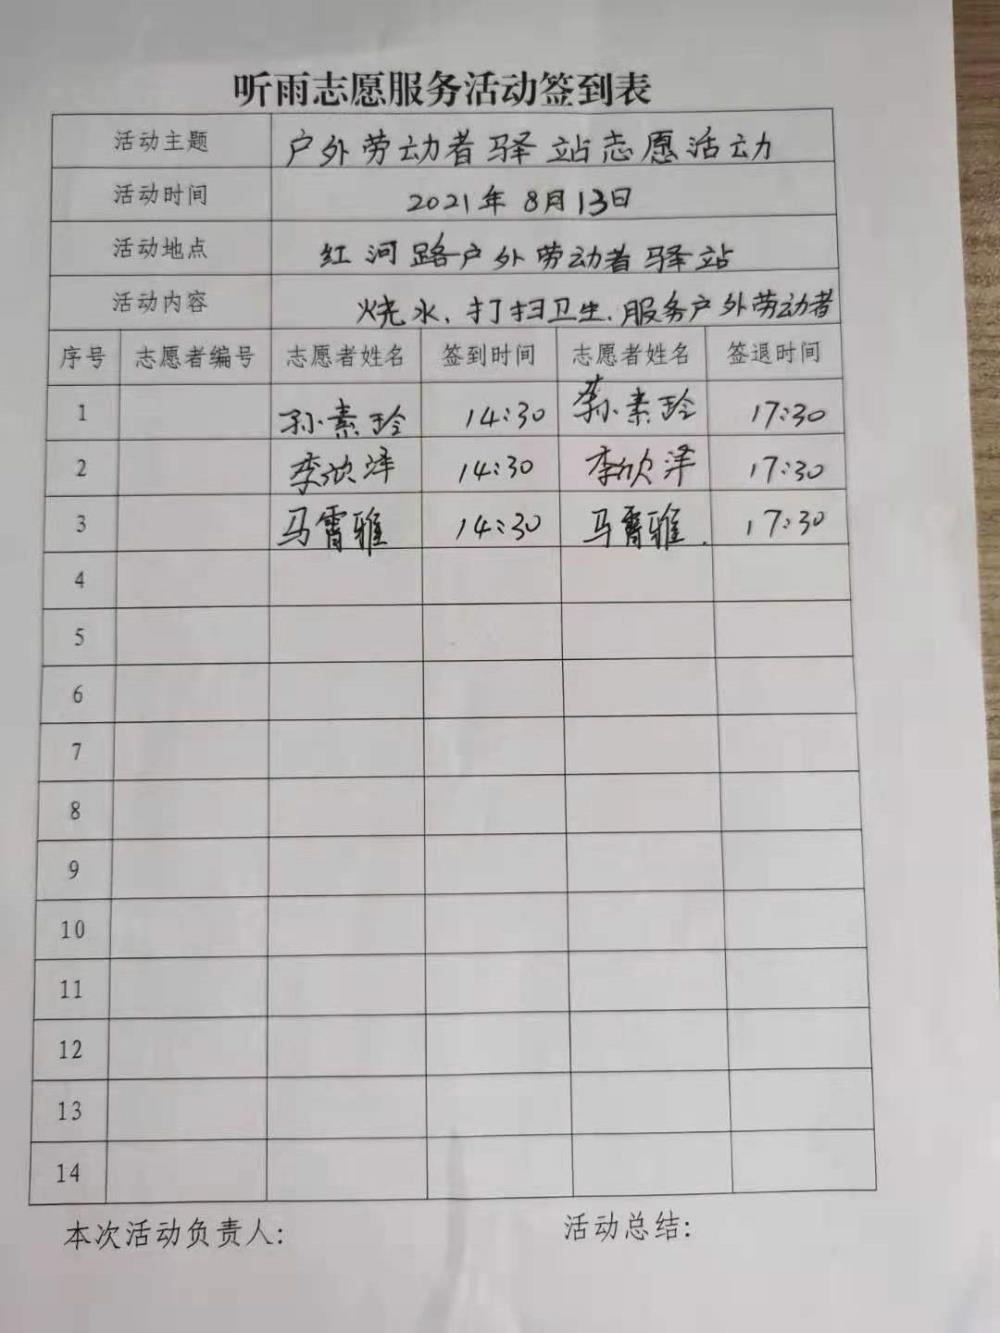 听雨志愿服务活动签到表
活动主题 户外劳动者驿站志愿活动
活动时间 2021年8月13日
活动地点 红河路户外劳动者驿站
活动内容 烧水、打扫卫生、服务户外劳动者
序号 志愿者编号 志愿者姓名 签到时间 志愿者姓名 签退时间
1 孙素玲 14:30 孙素玲 17:30
2 李欣泽 14:30 李欣泽 17:30
3 马霄雅 14:30 马霄雅. 17:30
4
5
6
7
8
9
10
11
12
13
14
本次活动负责人: 活动总结: